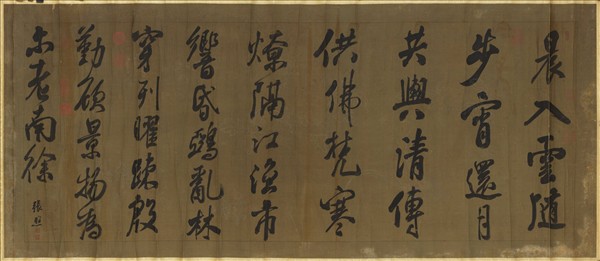 晨入雲隨
步宵還月
共輿清傳
供佛梵寒
燎隔江漁市
響昏鵶亂林
穿列曜疎殷
勤顧景物為
尔老南徐
張照